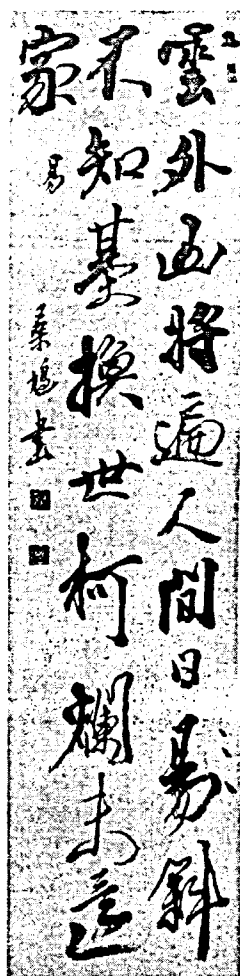 雲外山將遍人間日易斜
不知棊換世柯爛未還
家 易 桑鳩書